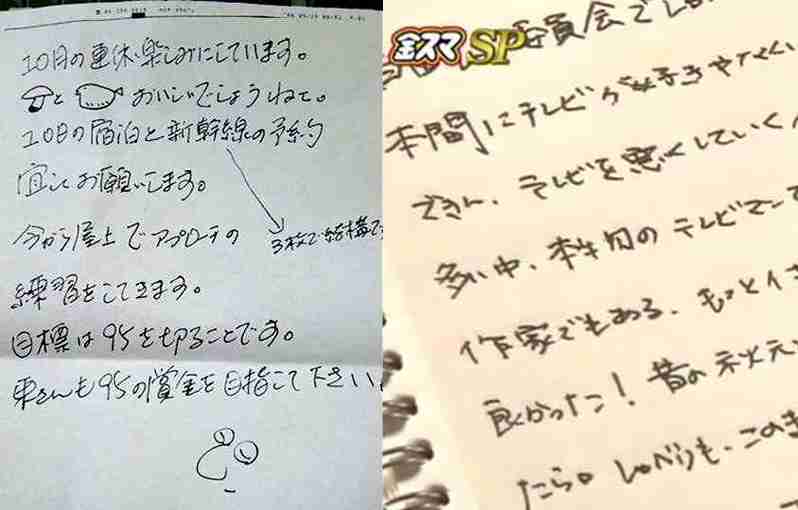 10月の連休楽しみにしています。
と おいしいでしょうねえ。
10日の宿泊と新幹線の予約
宜しくお願いします。
今から屋上でアプローチの
3枚で結構で
練習をしてきます。
目標は95を切ることです。
東さんも95の賞金を目指して下さい
金スマ
SP
員会でし
本間にテレビが好きやない
できん、テレビを悪くしていく
多い中、本当の テレビマン
作家でもある、もっと
良かった!昔の秋元
たら。しゃべりも、このき